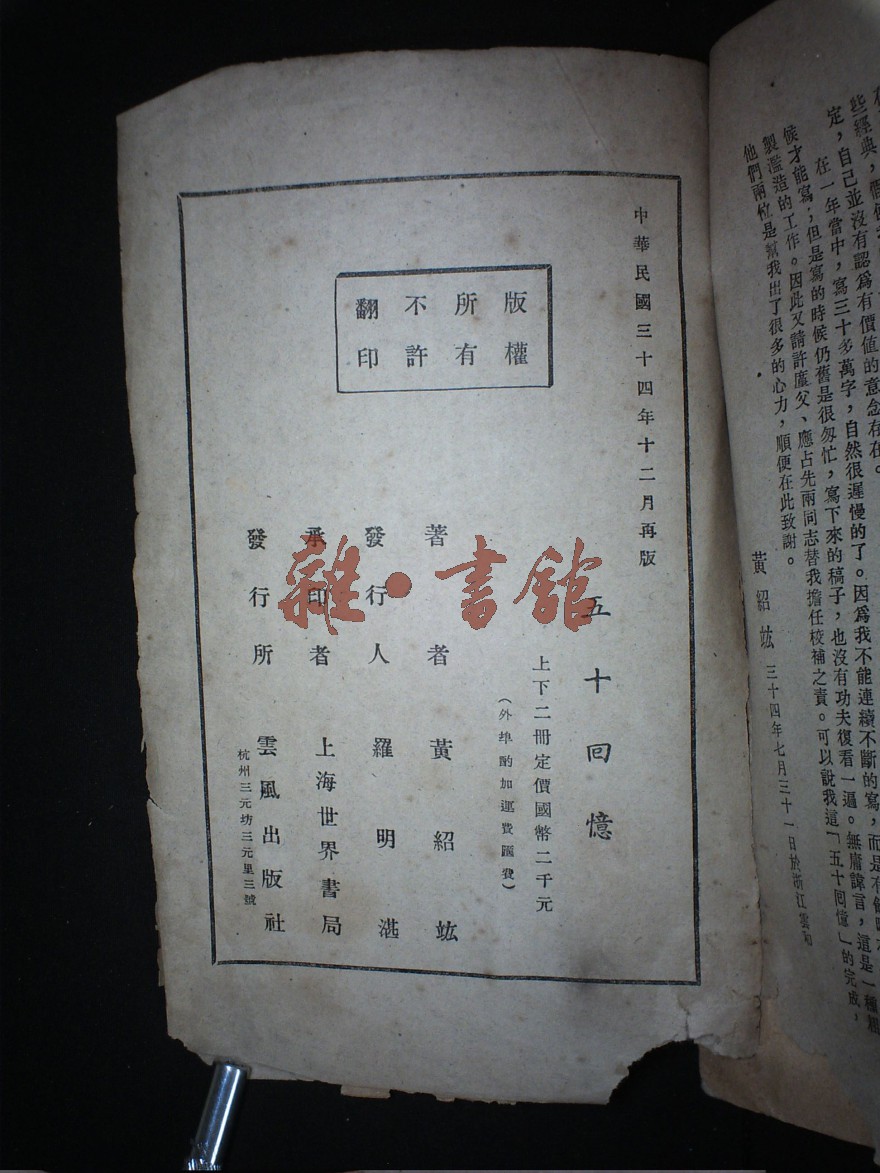 些經典，
定，自己並沒有認爲有價值的意念存在。
在一年當中，寫三十多萬字，自然很遲慢的了。因爲我不能連續不斷的寫，而是有
候才能寫；但是寫的時候仍舊是很匆忙，寫下來的稿子，也沒有功夫復看一遍。無庸諱言，這是一種
製濫造的工作。因此又請許廑父、應占先兩同志替我擔任校補之責。可以說我這「五十回憶」的完成，
他們兩位是幫我出了很多的心力，順便在此致謝。
黃紹竑 三十四年七月三十一日於浙江雲和
中華民國三十四年十二月再版
五十回憶
上下二冊定價國幣二千元
（外埠酌加運費匯費）
著者 黃紹竑
發行人 羅明湛
承印者 上海世界書局
發行所 雲風出版社
杭州三元坊三元里三號
版權
所有
不許
翻印
雜·書館